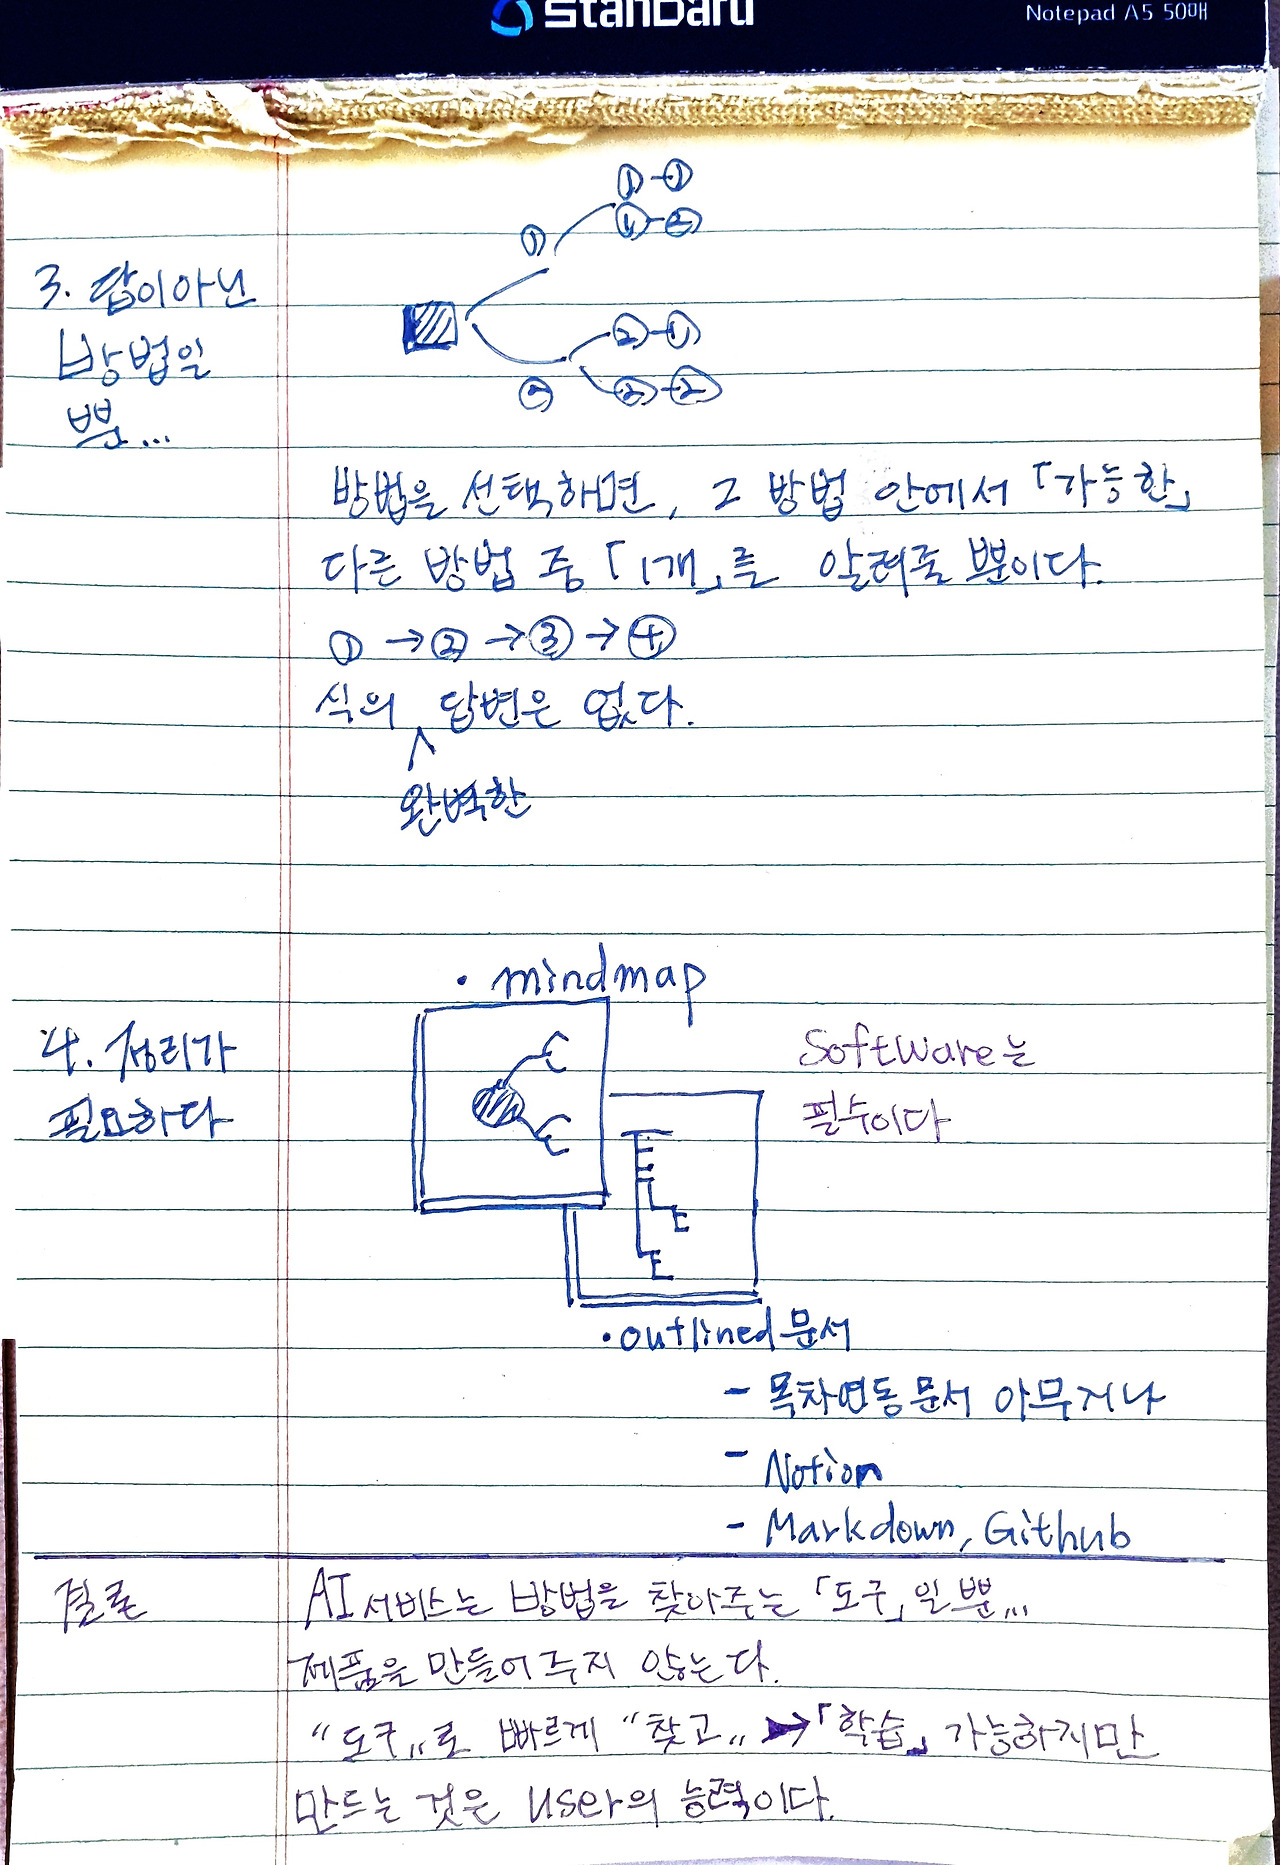 Standard
Notepad A5 50매
①-①
①-②
①
3. 답이아닌
방법일
뿐...
②-①
②-②
②
방법을 선택하면, 그 방법 안에서 「가능한」
다른 방법 중 「1개」를 알려줄 뿐이다.
① → ② → ③ → ④
식의 답변은 없다.
완벽한
• mindmap
4. 정리가
필요하다
Software는
필수이다
• outlined 문서
- 목차연동문서 아무거나
- Notion
- Markdown, Github
결론
AI 서비스는 방법을 찾아주는 「도구」일 뿐...
제품을 만들어 주지 않는다.
"도구"로 빠르게 "찾고" → 「학습」 가능하지만
만드는 것은 user의 능력이다.